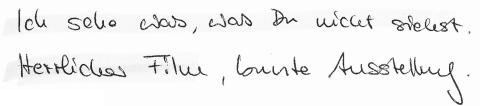 Ich sehe was, was Du nicht siehst.
Herrlicher Film, bunte Ausstellung.